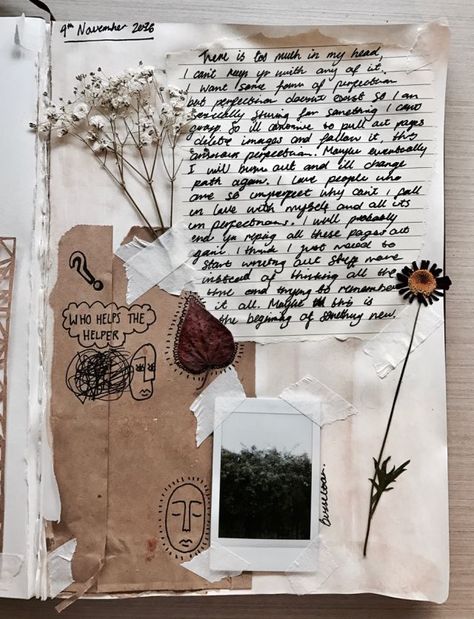 9th November 2016
There is too much in my head
I can't keep up with any of it
I want some form of perfection
but perfection doesnt exist so I am
striving for something I cant
So ill continue to pull out pages
delete images and follow it, this
perfection. Maybe eventually
I will burn out and ill change
path again. I love people who
are so imperfect why cant i fall
in love with myself and all its
imperfections. I will probably
end up ripping all these pages out
again. I think I just need to
start writing out stuff more
instead of thinking all the
time and trying to remember
it all. Maybe this is
the beginning of something new.
?
WHO HELPS THE
HELPER